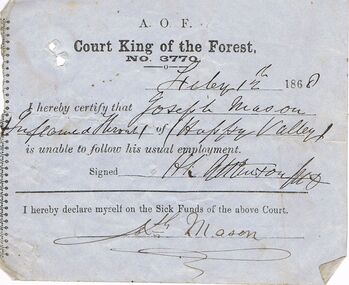 A. O. F.
Court King of the Forest,
NO. 3770.
Feby 1th 1868
I hereby certify that Joseph Mason
(Inflamed Throat) of Happy Valley
is unable to follow his usual employment.
Signed
I hereby declare myself on the Sick Funds of the above Court.
Jth Mason